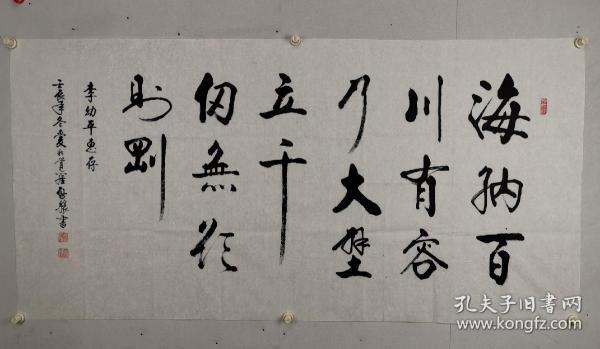 海納百
川有容
乃大壁
立千
仞無欲
則剛
李幼平惠存
壬辰年冬愛新覺羅書
孔夫子旧書网
www.kongfz.com